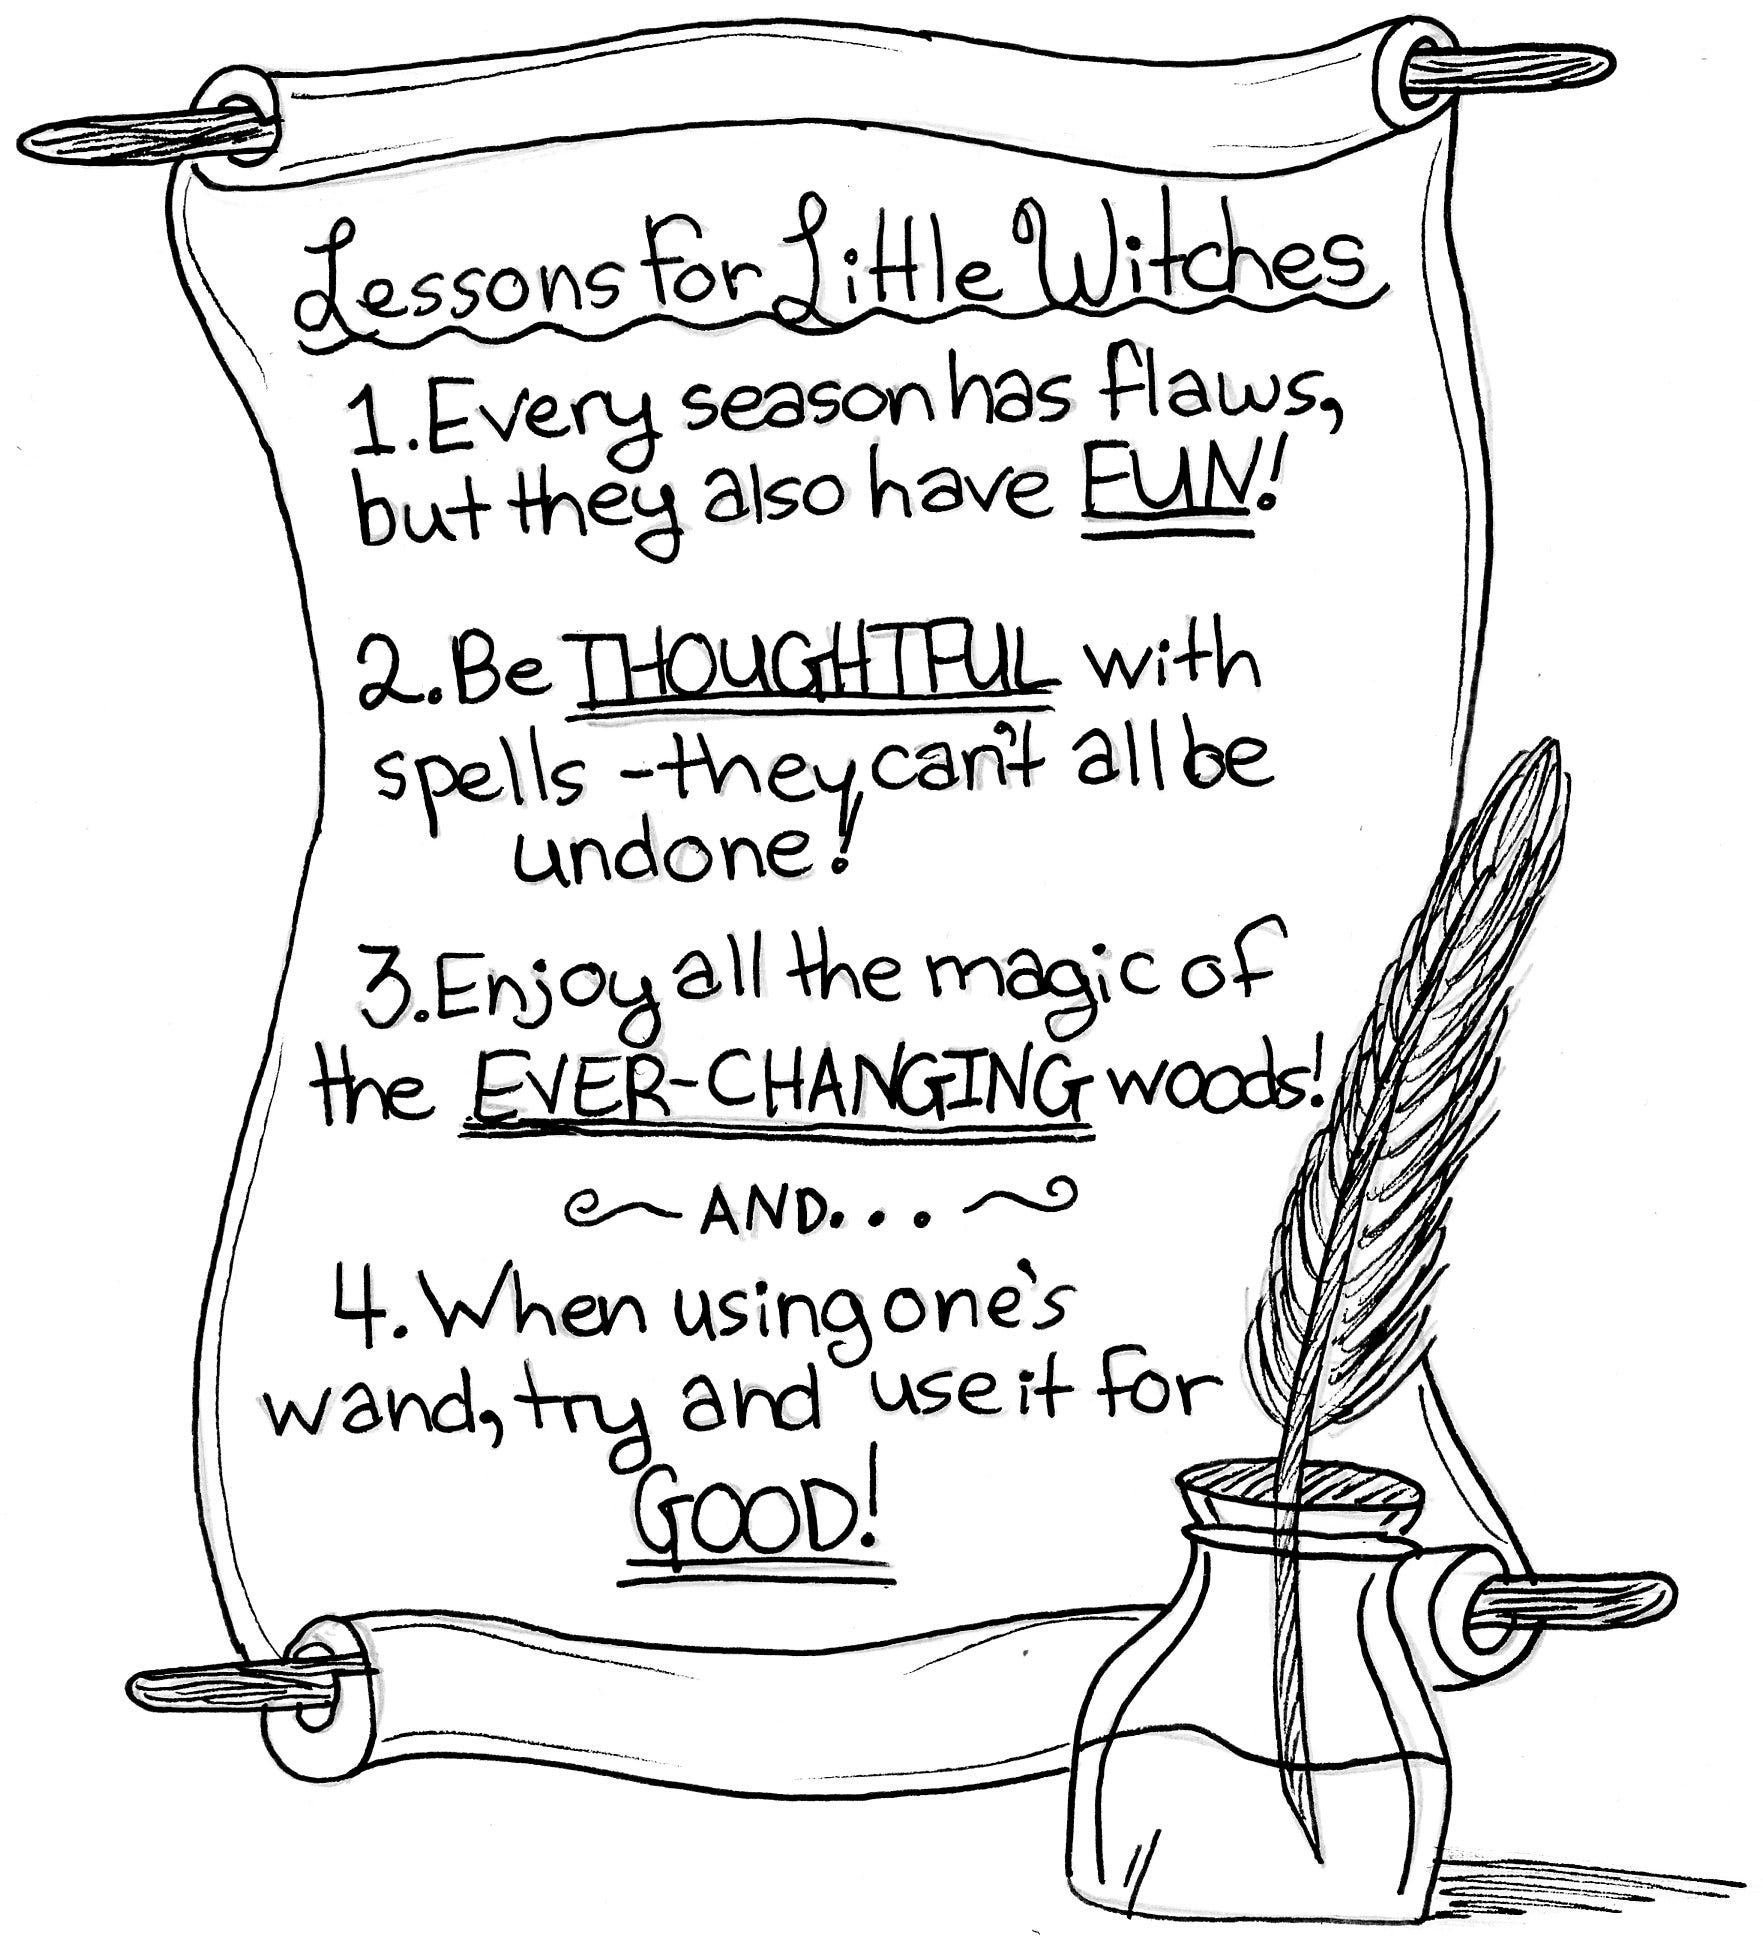 Lessons for Little Witches
1. Every season has flaws,
but they also have FUN!
2. Be THOUGHTFUL with
spells - they can't all be
undone!
3. Enjoy all the magic of
the EVER-CHANGING woods!
AND...
4. When using one's
wand, try and use it for
GOOD!